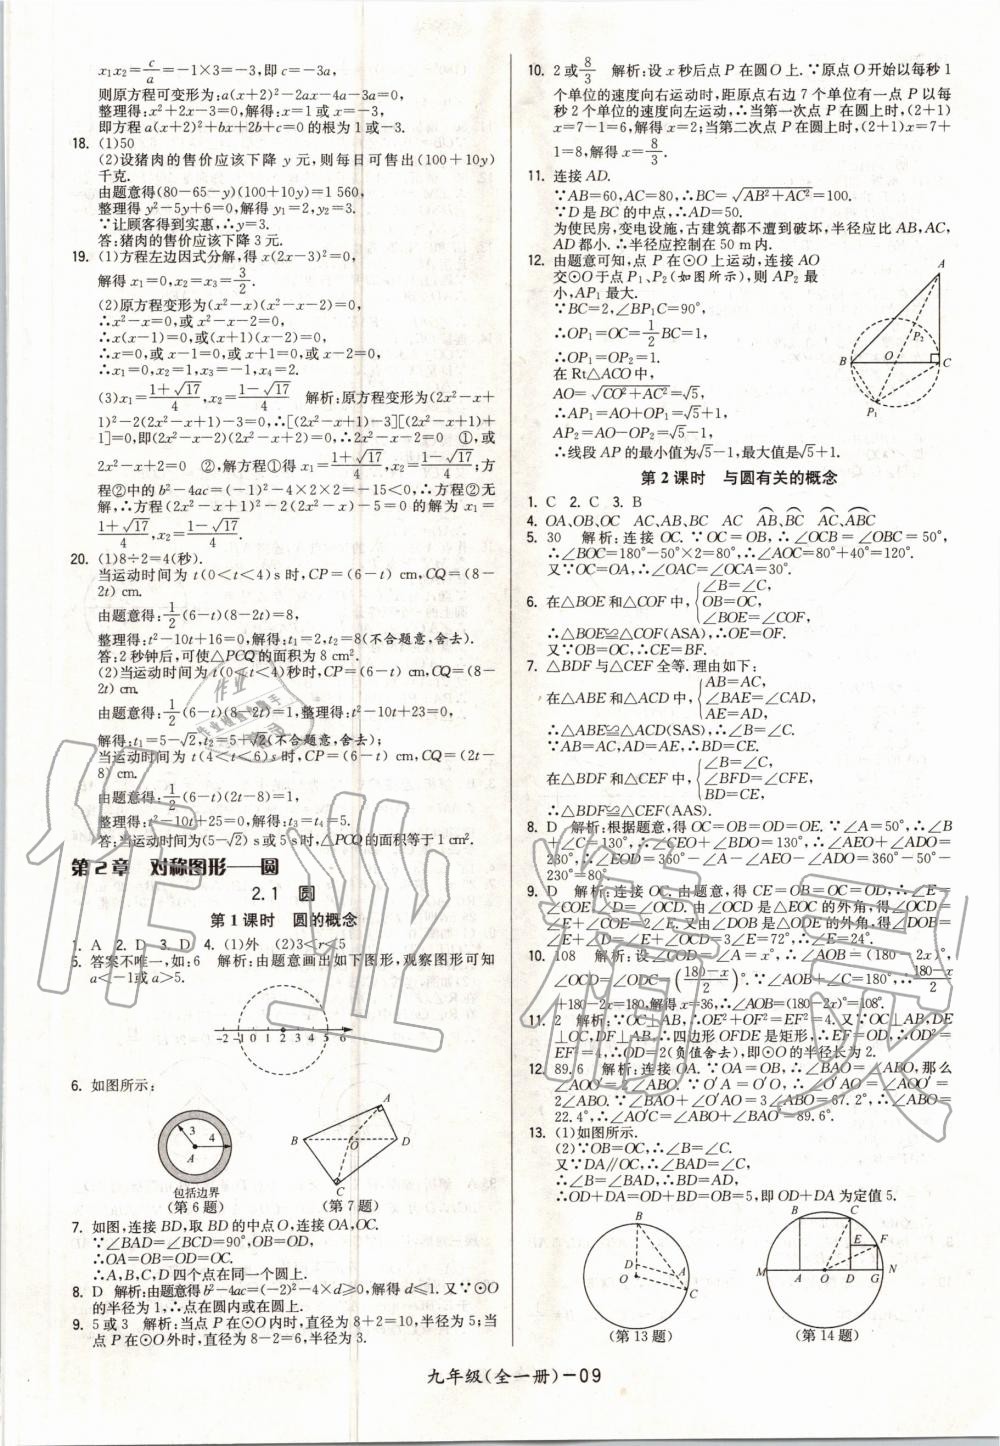 x₁x₂=c/a=-1×3=-3,即c=-3a,
则原方程可变形为:a(x+2)²-2ax-4a-3a=0,
整理得:x²+2x-3=0,解得:x=1或x=-3,
即方程a(x+2)²+bx+2b+c=0的根为1或-3.
18. (1)50
(2)设猪肉的售价应该下降 y 元,则每日可售出(100+10y)
千克.
由题意得(80-65-y)(100+10y)=1 560,
整理得y²-5y+6=0,解得y₁=2,y₂=3.
∵让顾客得到实惠,∴y=3.
答:猪肉的售价应该下降3元.
19. (1)方程左边因式分解,得x(2x-3)²=0,
解得x₁=0,x₂=x₃=3/2.
(2)原方程变形为(x²-x)(x²-x-2)=0,
∴x²-x=0,或x²-x-2=0,
∴x(x-1)=0,或(x+1)(x-2)=0,
∴x=0,或x-1=0,或x+1=0,或x-2=0,
∴x₁=0,x₂=1,x₃=-1,x₄=2.
(3)x₁=(1+√17)/4,x₂=(1-√17)/4 解析:原方程变形为(2x²-x+
1)²-2(2x²-x+1)-3=0,∴[(2x²-x+1)-3][(2x²-x+1)+
1]=0,即(2x²-x-2)(2x²-x+2)=0,∴2x²-x-2=0 ①,或
2x²-x+2=0 ②,解方程①得x₁=(1+√17)/4,x₂=(1-√17)/4;方
程②中的b²-4ac=(-1)²-4×2×2=-15<0,∴方程②无
解,∴方程(2x²-x+1)²-2(2x²-x)-5=0 的解为 x₁=
(1+√17)/4,x₂=(1-√17)/4.
20. (1)8÷2=4(秒).
当运动时间为 t(0<t<4)s时,CP=(6-t) cm,CQ=(8-
2t) cm.
由题意得:1/2(6-t)(8-2t)=8,
整理得:t²-10t+16=0,解得:t₁=2,t₂=8(不合题意,舍去).
答:2秒钟后,可使△PCQ的面积为8 cm².
(2)当运动时间为 t(0<t<4)秒时,CP=(6-t) cm,CQ=(8-
2t) cm.
由题意得:1/2(6-t)(8-2t)=1,整理得:t²-10t+23=0,
解得:t₁=5-√2,t₂=5+√2(不合题意,舍去);
当运动时间为 t(4<t<6)s 时,CP=(6-t) cm,CQ=(2t-
8) cm.
由题意得:1/2(6-t)(2t-8)=1,
整理得:t²-10t+25=0,解得:t₃=t₄=5.
答:当运动时间为(5-√2) s或5 s时,△PCQ的面积等于1 cm².
第2章 对称图形——圆
2.1 圆
第1课时 圆的概念
1. A 2. D 3. D 4. (1)外 (2)3<r<5
5. 答案不唯一,如:6 解析:由题意画出如下图形,观察图形可知
a<-1或a>5.
-2 -1 0 1 2 3 4 5 6
6. 如图所示:
3 4 A
包括边界
(第6题)
A B O D C
(第7题)
7. 如图,连接BD,取BD的中点O,连接OA,OC.
∵∠BAD=∠BCD=90°,OB=OD,
∴OA=OB=OD=OC.
∴A,B,C,D四个点在同一个圆上.
8. D 解析:由题意得b²-4ac=(-2)²-4×d≥0,解得d≤1.又∵⊙O
的半径为1,∴点在圆内或在圆上.
9. 5或3 解析:当点P在⊙O内时,直径为8+2=10,半径为5;当
点P在⊙O外时,直径为8-2=6,半径为3.
10. 2或8/3 解析:设x秒后点P在圆O上.∵原点O开始以每秒1
个单位的速度向右运动时,距原点右边7个单位有一点P以每
秒2个单位的速度向左运动,∴当第一次点P在圆上时,(2+1)
x=7-1=6,解得x=2;当第二次点P在圆上时,(2+1)x=7+
1=8,解得x=8/3.
11. 连接AD.
∵AB=60,AC=80,∴BC=√(AB²+AC²)=100.
∵D是BC的中点,∴AD=50.
为使民房,变电设施,古建筑都不遭到破坏,半径应比AB,AC,
AD都小.∴半径应控制在50 m内.
12. 由题意可知,点P在⊙O上运动,连接AO
交⊙O于点P₁、P₂(如图所示),则AP₂最
小,AP₁最大.
∵BC=2,∠BP₁C=90°,
∴OP₁=OC=1/2BC=1,
∴OP₁=OP₂=1.
在Rt△ACO中,
AO=√(CO²+AC²)=√5,
∴AP₁=AO+OP₁=√5+1,
AP₂=AO-OP₂=√5-1,
∴线段AP的最小值为√5-1,最大值是√5+1.
A P₂ B O C P₁
第2课时 与圆有关的概念
1. C 2. C 3. B
4. OA、OB、OC AC、AB、BC AC A͡B、B͡C A͡C、A͡BC
5. 30 解析:连接OC.∵OC=OB,∴∠OCB=∠OBC=50°,
∴∠BOC=180°-50°×2=80°,∴∠AOC=80°+40°=120°.
又∵OC=OA,∴∠OAC=∠OCA=30°.
6. 在△BOE和△COF中,{∠B=∠C, OB=OC, ∠BOE=∠COF,
∴△BOE≌△COF(ASA),∴OE=OF.
又∵OB=OC,∴CE=BF.
7. △BDF与△CEF全等.理由如下:
在△ABE和△ACD中,{AB=AC, ∠BAE=∠CAD, AE=AD,
∴△ABE≌△ACD(SAS),∴∠B=∠C.
∵AB=AC,AD=AE,∴BD=CE.
在△BDF和△CEF中,{∠B=∠C, ∠BFD=∠CFE, BD=CE,
∴△BDF≌△CEF(AAS).
8. D 解析:根据题意,得OC=OB=OD=OE.∵∠A=50°,∴∠B
+∠C=130°,∴∠CEO+∠BDO=130°,∴∠AEO+∠ADO=
230°,∴∠EOD=360°-∠A-∠AEO-∠ADO=360°-50°-
230°=80°.
9. D 解析:连接OC.由题意,得CE=OB=OC=OD,∴∠E=
∠COE,∠D=∠OCD.由∠OCD是△EOC的外角,得∠OCD=
∠E+∠COE=2∠E.又由∠DOB是△DOE的外角,得∠DOB=
∠E+∠D=∠E+∠OCD=3∠E=72°,∴∠E=24°.
10. 108 解析:设∠COD=∠A=x°,∴∠AOB=(180-2x)°,
∠OCD=∠ODC=((180-x)/2)°.∵∠AOB+∠C=180°,∴(180-x)/2
+180-2x=180,解得x=36,∴∠AOB=(180-2x)°=108°.
11. 2 解析:∵OC⊥AB,∴OE²+OF²=EF²=4.又∵OC⊥AB,DE
⊥OC,DF⊥AB,∴四边形OFDE是矩形,∴EF=OD,∴OD²=
EF²=4,∴OD=2(负值舍去),即⊙O的半径长为2.
12. 89.6 解析:连接OA.∵OA=OB,∴∠BAO=∠ABO,那么
∠AOO′=2∠ABO.∵O′A=O′O,∴∠O′AO=∠AOO′=
2∠ABO,∴∠O′AO+∠ABO=3∠ABO=67.2°,∴∠ABO=
22.4°,∴∠AO′C=∠ABO+∠BAO′=89.6°.
13. (1)如图所示.
(2)∵OB=OC,∴∠B=∠C.
又∵DA∥OC,∴∠BAD=∠C,
∴∠B=∠BAD,∴BD=AD,
∴OD+DA=OD+BD=OB=5,即OD+DA为定值5.
B D O A C
(第13题)
B C E F M A O D G N
(第14题)
九年级(全一册)-09
作业精灵